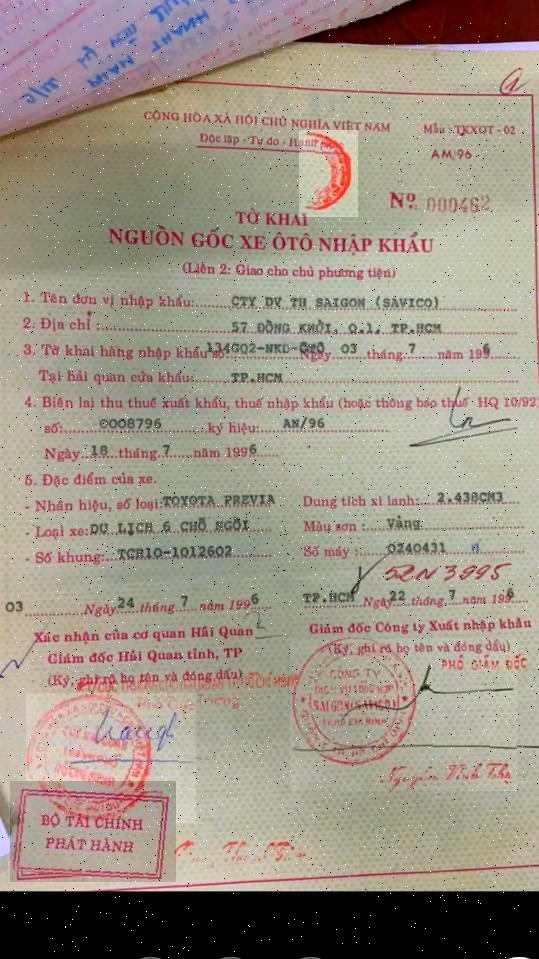 CỘNG HÒA XÃ HỘI CHỦ NGHĨA VIỆT NAM
Độc lập - Tự do - Hạnh
Mẫu : TKXGT - 02
AM/96
Nº 000462
TỜ KHAI
NGUỒN GỐC XE ÔTÔ NHẬP KHẨU
(Liên 2: Giao cho chủ phương tiện)
1. Tên đơn vị nhập khẩu: CTY DV TH SAIGON (SAVICO)
2. Địa chỉ : 57 ĐỒNG KHỞI, Q.1, TP.HCM
3. Tờ khai hàng nhập khẩu số: 134GQ2-NKD-ÔTÔ Ngày 03 tháng 7 năm 1996
Tại hải quan cửa khẩu: TP.HCM
4. Biên lai thu thuế xuất khẩu, thuế nhập khẩu (hoặc thông báo thuế HQ 10/92)
số: 008796 ký hiệu: AN/96
Ngày 18 tháng 7 năm 1996
5. Đặc điểm của xe.
- Nhãn hiệu, số loại: TOYOTA PREVIA Dung tích xi lanh: 2.438CM3
- Loại xe: DU LỊCH 6 CHỖ NGỒI Màu sơn : Vàng
- Số khung: TCR10-1012602 Số máy : 0240431
52N 3995
03 Ngày 24 tháng 7 năm 1996 TP.HCM Ngày 22 tháng 7 năm 1996
Xác nhận của cơ quan Hải Quan Giám đốc Công ty Xuất nhập khẩu
Giám đốc Hải Quan tỉnh, TP (Ký, ghi rõ họ tên và đóng dấu)
(Ký, ghi rõ họ tên và đóng dấu) PHÓ GIÁM ĐỐC
CÔNG TY
DỊCH VỤ TỔNG HỢP
SAIGON (SAVICO)
BỘ TÀI CHÍNH
PHÁT HÀNH